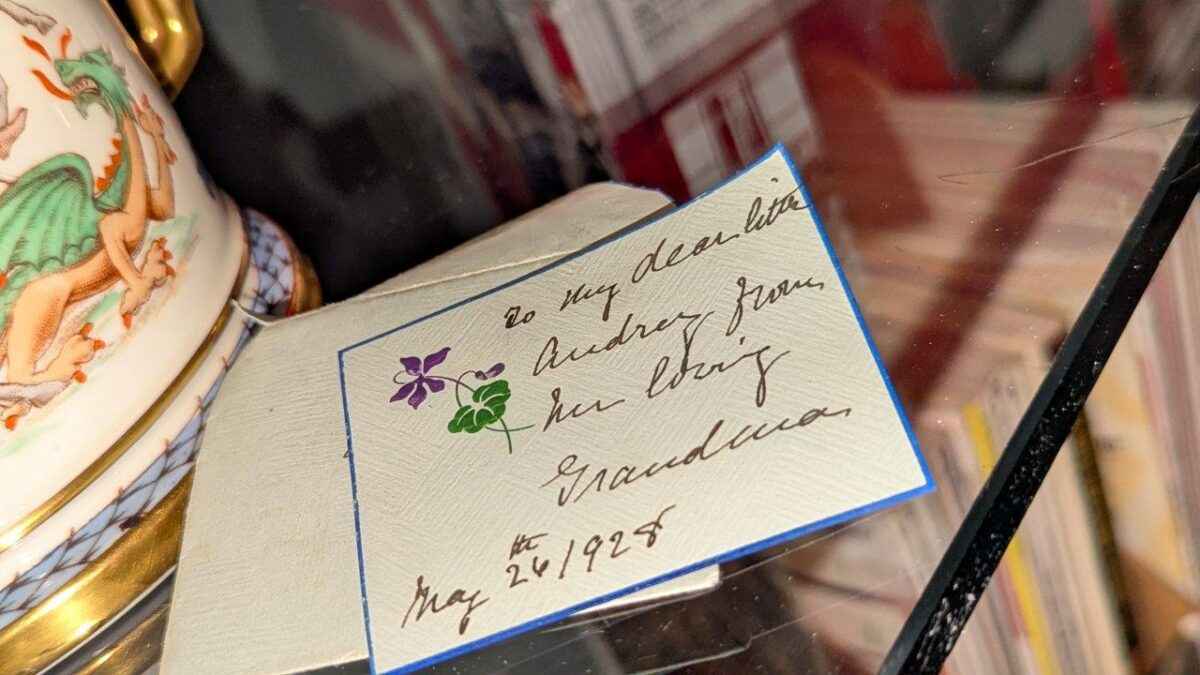 To my dear little
Audrey from
her loving
Grandma
May 26th/1928